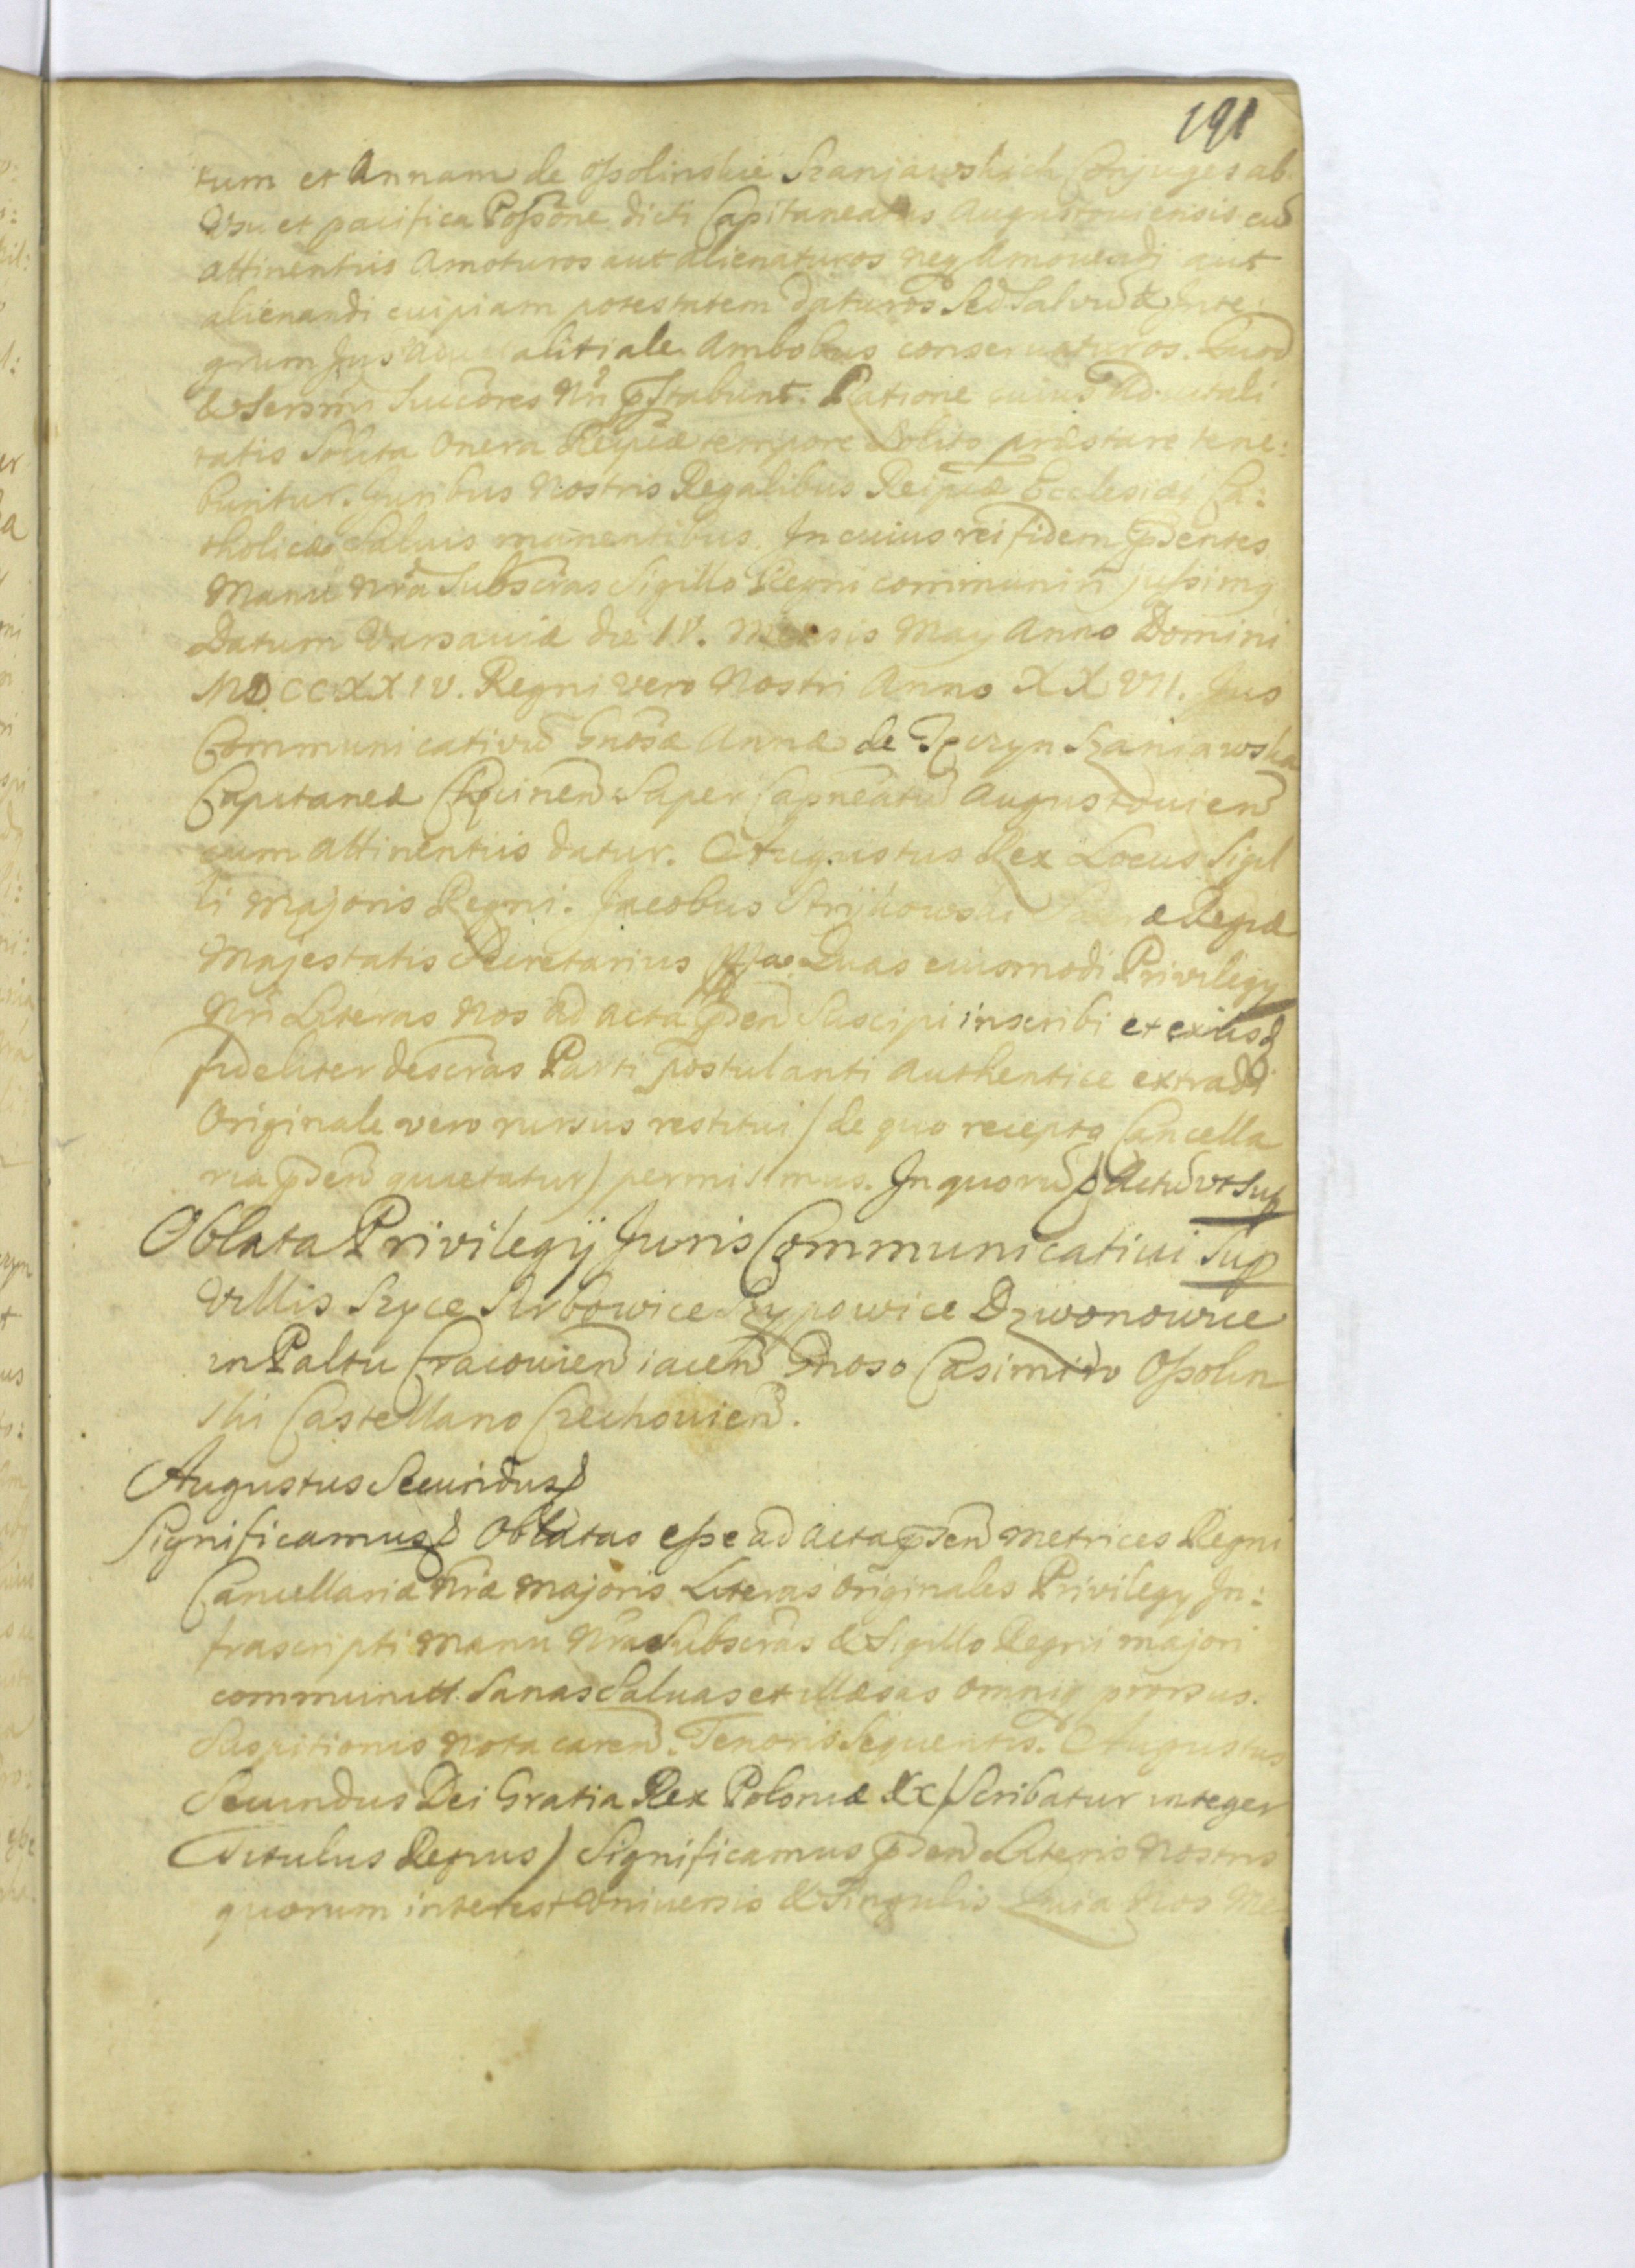 191
tum et Annam de Ossolinskie Szaniawskich Conjuges ab
Usu et pacifica Possõne dicti Capitaneatus Augustoviensis cũ
attinentiis Amoturos aut alienaturos neq Amovendi aut
alienandi cuipiam potestatem daturos Sed Salvũ & Inte:
grum Jus advitalitiale Ambobus conservaturos. Quod
& Sersmi Succõres Nri pstabunt. Ratione cuius Advitali
tatis Solita Onera Reipcæ tempore Solito præstare tene:
buntur. Juribus Nostris Regalibus Reipcæ Ecclesiæq Ca:
tholicæ Salvis manentibus. In cuius rei fidem pdentes
Manu Nrã Subscrãs Sigillo Regni communiri jussimq
Datum Varsaviæ die IV. Mensis May Anno Domini
MDCCXXIV. Regni vero Nostri Anno XXVII. Jus
Communicativũ Gnosæ Annæ de Szaniawska
Capitaneæ Super Capneatũ Augustovienẽ
cum attinentiis datur. Augustus Rex Locus Sigil
li Majoris Regni. Jacobus Sacræ Regiæ
Majestatis Secretarius Quas eiusmodi Privilegy
Nri Literas Nos ad acta pden Suscipi inscribi et ex iisd
fideliter descrãs Parti postulanti Authentice extradi
Originale vero rursus restitui / de quo recepto Cancella
ria pden quietatur) permisimus. In quorũ p Actũ vt Sup
Oblata Privilegij Juris Communicativi Sup
Villis Szyce Szypowice Dzwonowice
in Paltu Cracovien iacen Gnoso Casimiro Ossolin
ski Castellano Czechovien.
Augustus Secundus
Significamus Oblatas esse ad Acta pden Metrices Regni
Cancellariæ Nræ Majoris Literas Originales Privilegy In:
frascripti Manu Nra Subscrãs & Sigillo Regni majori
communitt. Sanas Salvas et illæsas omniq prorsus
Suspitionis nota caren. Tenoris Sequentis. Augustus
Secundus Dei Gratia Rex Poloniæ &c / Scribatur integer
Titulus Regius) Significamus pden Literis Nostris
quorum interest Universis & Singulis Quia Nos Me